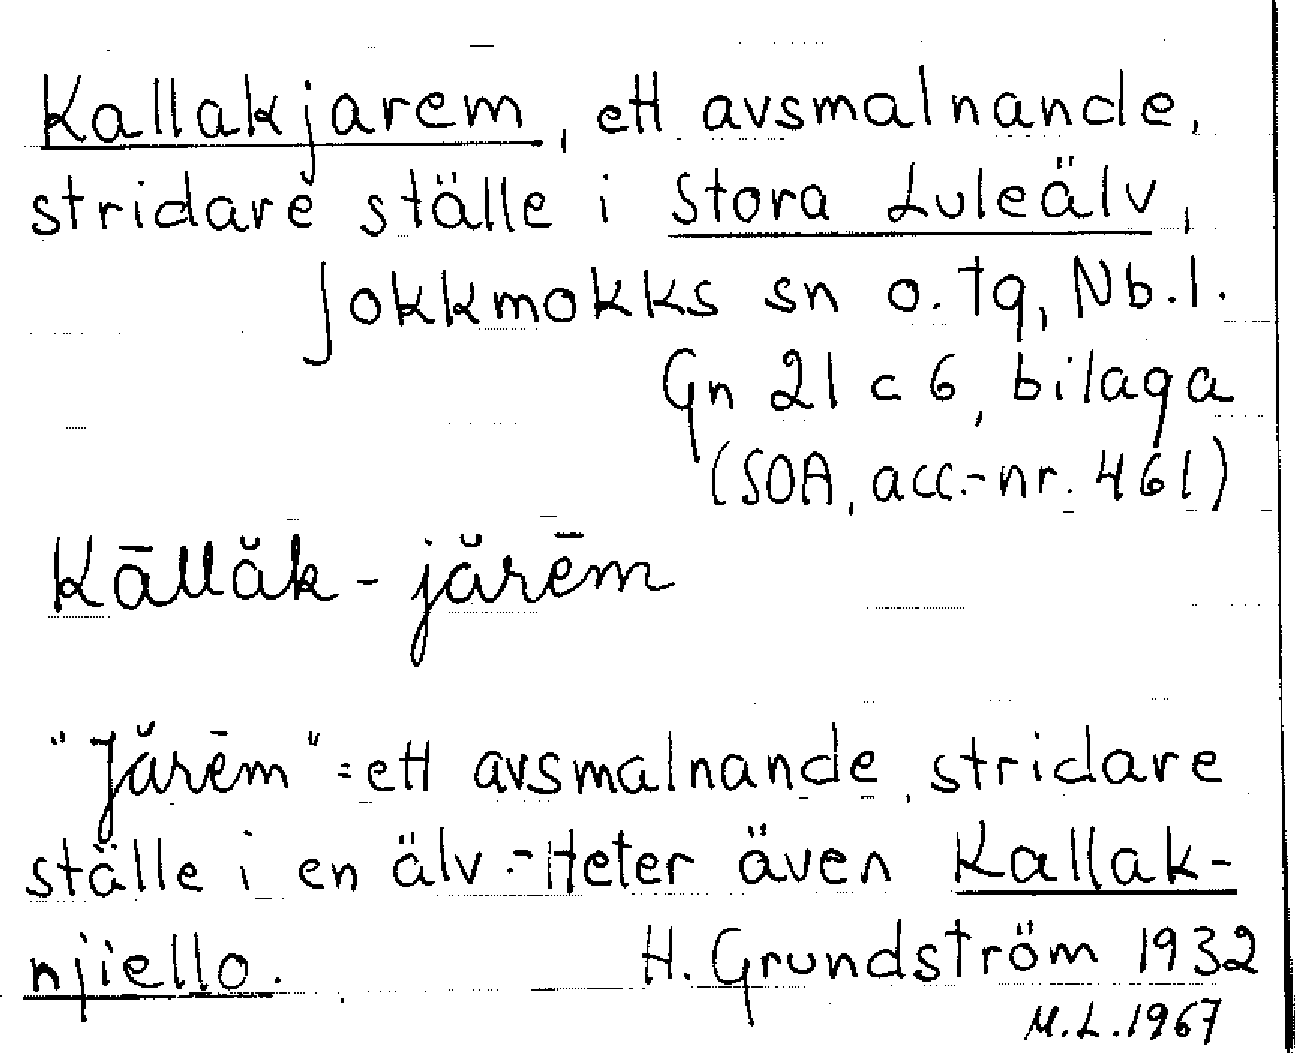 Kallakjarem, ett avsmalnande,
stridare ställe i Stora Luleälv,
Jokkmokks sn o. tg, Nb.l.
Gn 21 c 6, bilaga
(SOA, acc.-nr. 461)
Kāllăk-jărēm
"Jărēm" = ett avsmalnande, stridare
ställe i en älv. - Heter även Kallak-
njiello. H. Grundström 1932
M.L. 1967